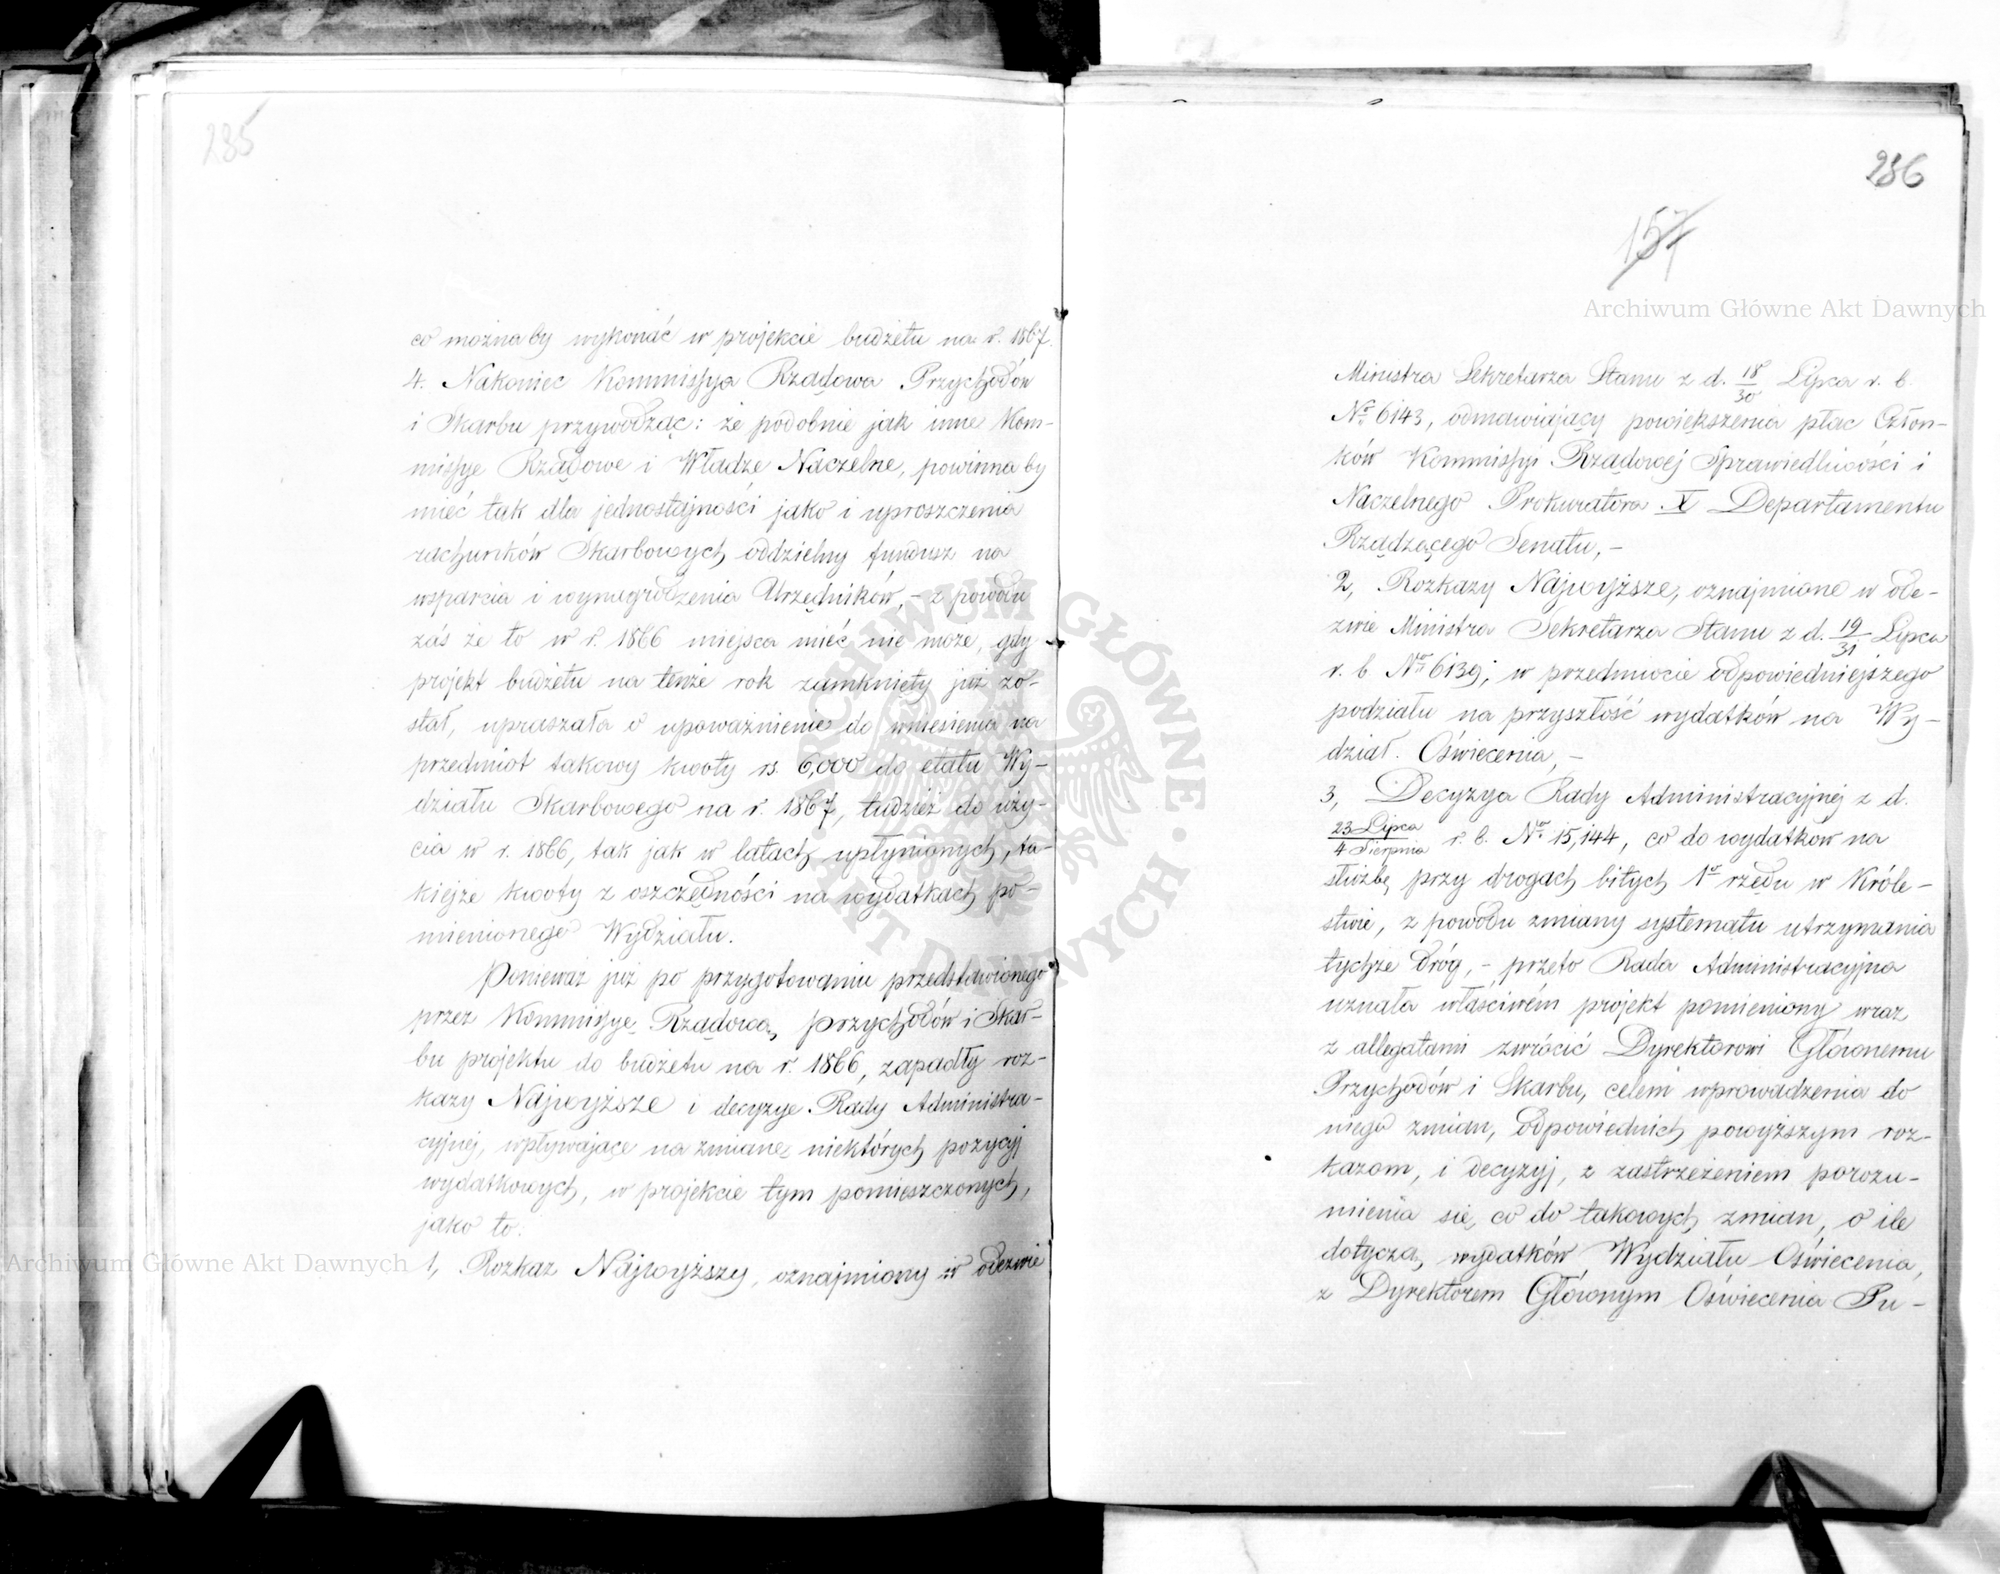 285
co możnaby wykonać w projekcie budżetu na r. 1867.
4. Nakoniec Kommissya Rządowa Przychodów
i Skarbu przywodząc: że podobnie jak inne Kom-
missye Rządowe i Władze Naczelne, powinnaby
mieć tak dla jednostajności jako i uproszczenia
rachunków Skarbowych oddzielny fundusz na
wsparcia i wynagrodzenia Urzędników, - z powodu
zaś że to w r. 1866 miejsca mieć nie może, gdy
projekt budżetu na tenże rok zamknięty już zo-
stał, upraszała o upoważnienie do wniesienia na
przedmiot takowy kwoty rs. 6,000 do etatu Wy-
działu Skarbowego na r. 1867, tudzież do uży-
cia w r. 1866, tak jak w latach upłynionych, ta-
kiejże kwoty z oszczędności na wydatkach po-
mienionego Wydziału.
Ponieważ już po przygotowaniu przedstawionego
przez Kommissyę Rządową Przychodów i Skar-
bu projektu do budżetu na r. 1866, zapadły roz-
kazy Najwyższe i decyzye Rady Administra-
cyjnéj, wpływające na zmianę niektórych pozycyj
wydatkowych, w projekcie tym pomieszczonych,
jako to:
1, Rozkaz Najwyższy, oznajmiony w odezwie
286
157
Ministra Sekretarza Stanu z d. 18/30 Lipca r. b.
No 6143, odmawiający powiększenia płac Człon-
ków Kommissyi Rządowej Sprawiedliwości i
Naczelnego Prokuratora X Departamentu
Rządzącego Senatu, -
2, Rozkazy Najwyższe, oznajmione w ode-
zwie Ministra Sekretarza Stanu z d. 19/31 Lipca
r. b. No 6139; w przedmiocie odpowiedniejszego
podziału na przyszłość wydatków na Wy-
dział Oświecenia, -
3, Decyzya Rady Administracyjnéj z d.
23 Lipca/4 Sierpnia r. b. No 15,144, co do wydatków na
służbę przy drogach bitych 1o rzędu w Króle-
stwie, z powodu zmiany systematu utrzymania
tychże dróg, - przeto Rada Administracyjna
uznała właściwém projekt pomieniony wraz
z allegatami zwrócić Dyrektorowi Głównemu
Przychodów i Skarbu, celem wprowadzenia do
niego zmian, odpowiednich powyższym roz-
kazom, i decyzyj, z zastrzeżeniem porozu-
mienia się, co do takowych zmian, o ile
dotyczą wydatków Wydziału Oświecenia,
z Dyrektorem Głównym Oświecenia Pu-
Archiwum Główne Akt Dawnych
Archiwum Główne Akt Dawnych
ARCHIWUM GŁÓWNE • AKT DAWNYCH •